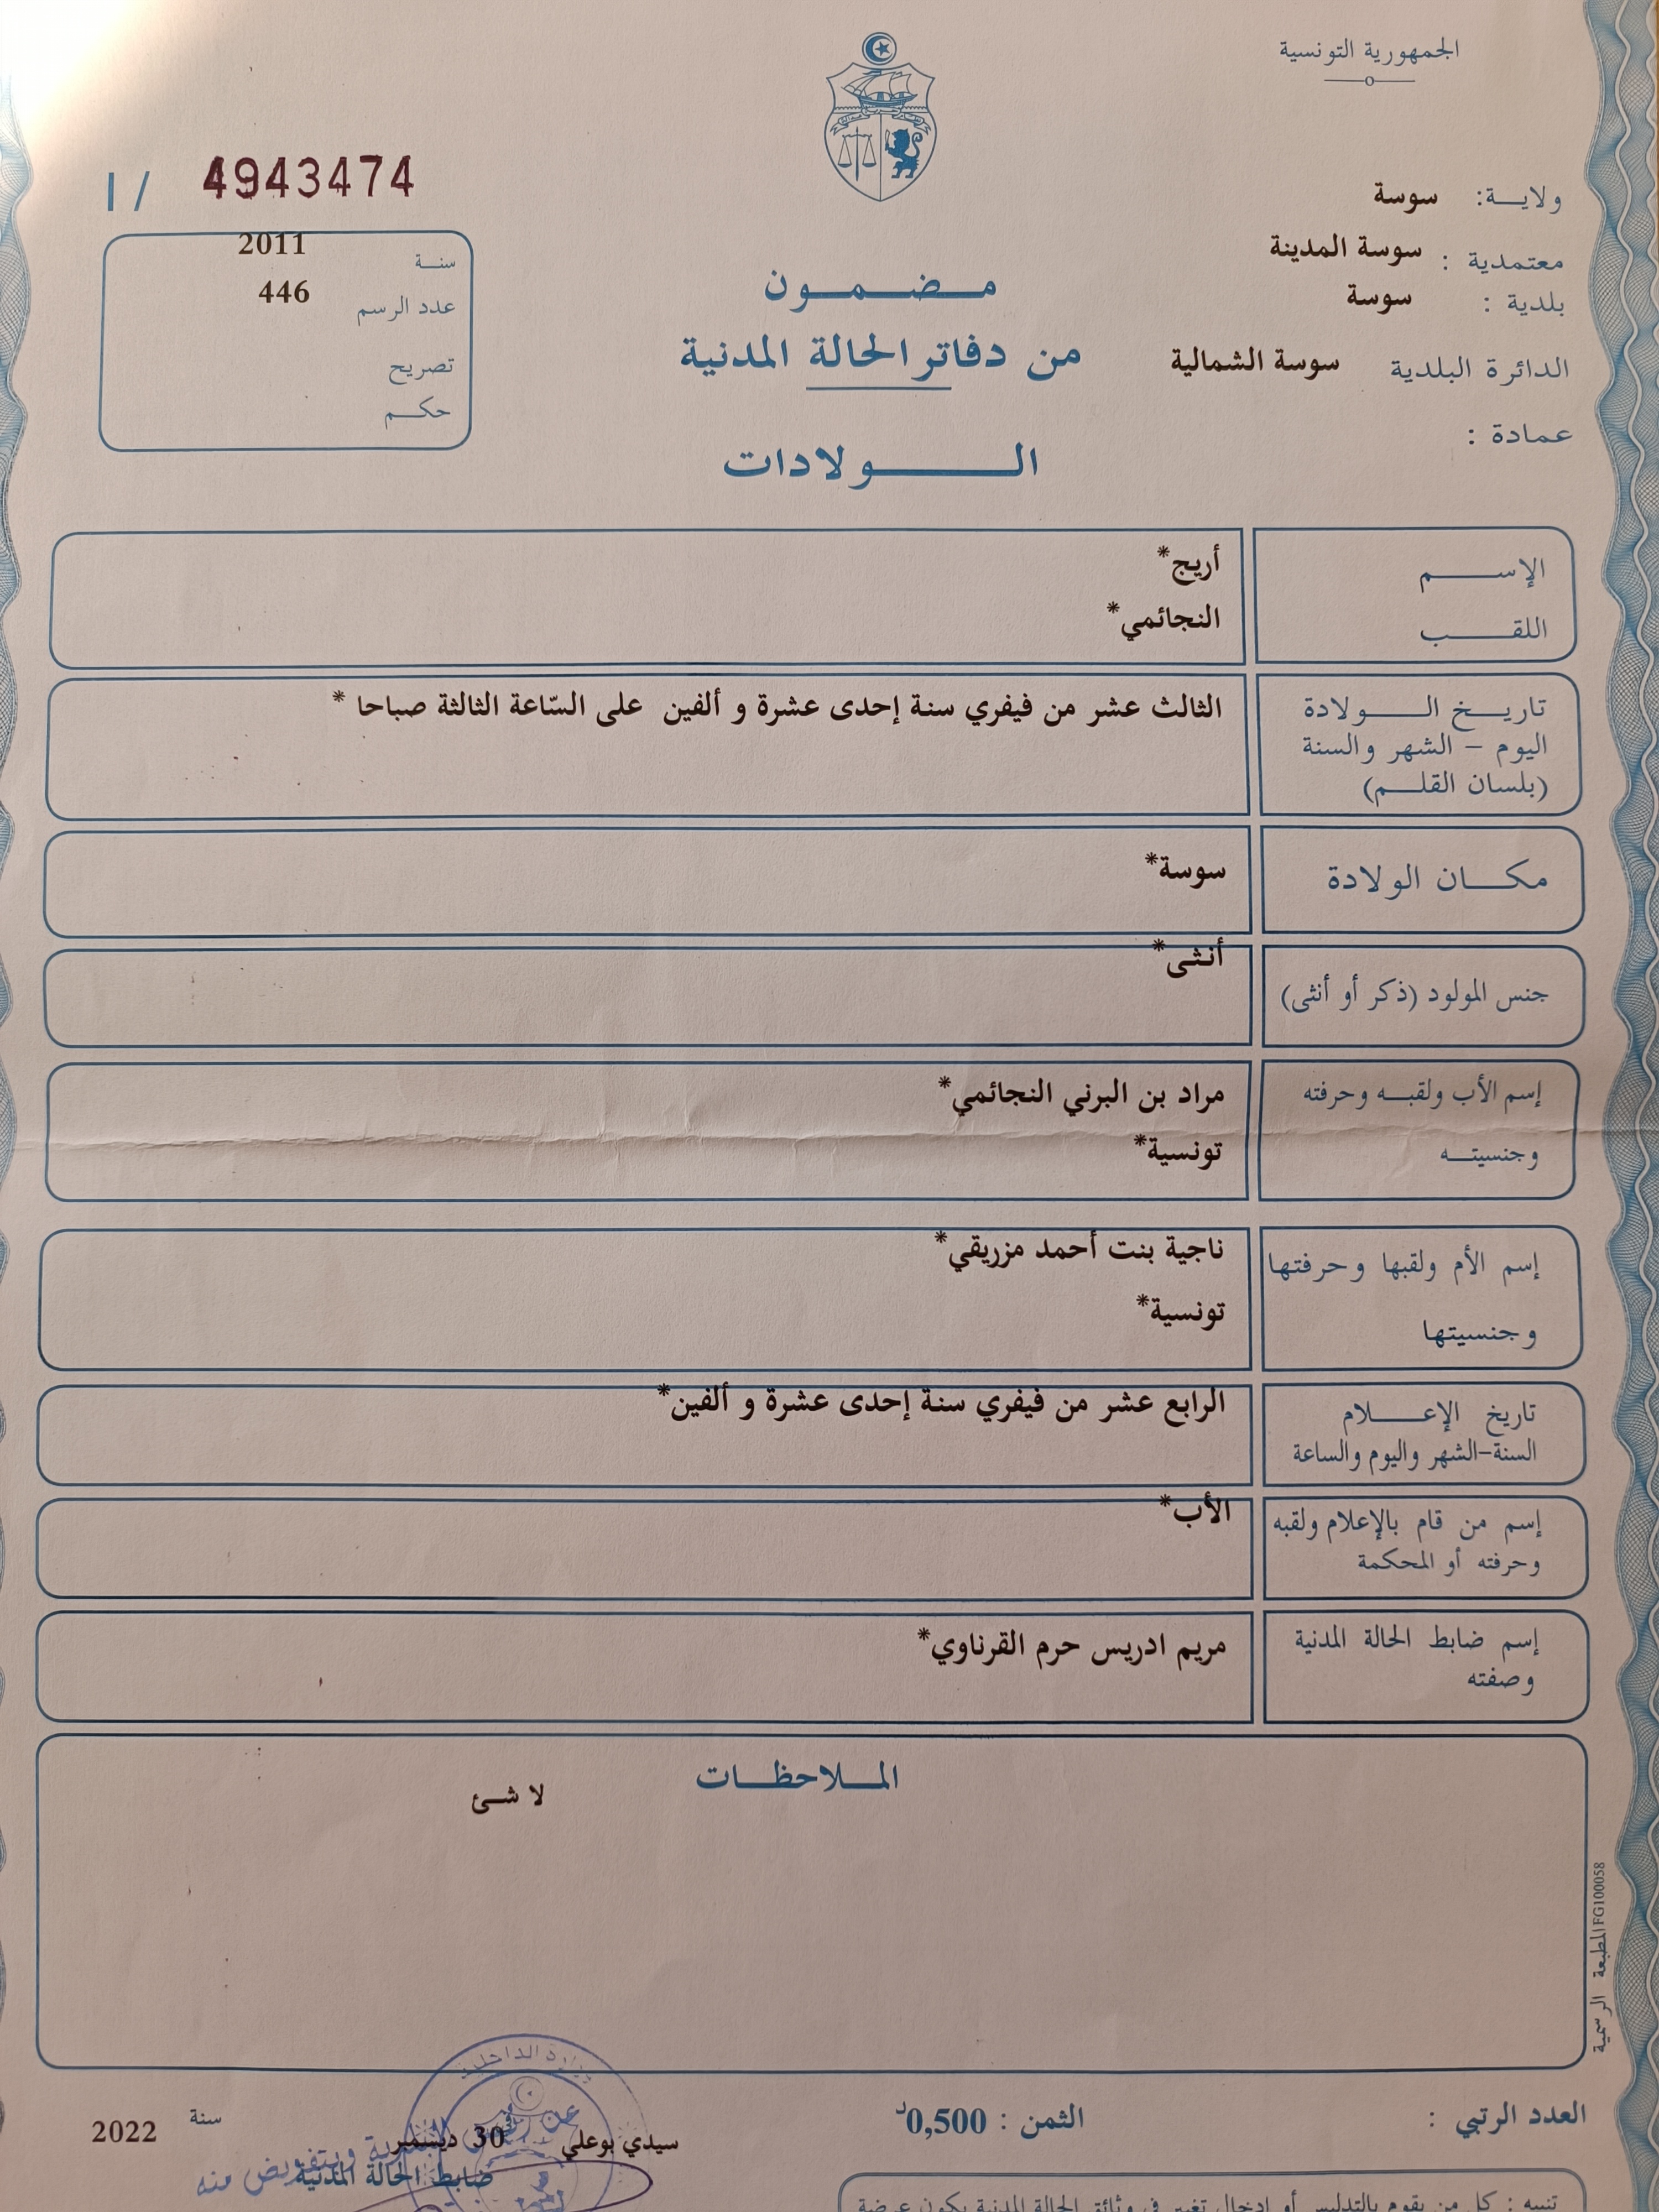 الجمهورية التونسية
ولاية: سوسة
معتمدية : سوسة المدينة
بلدية : سوسة
الدائرة البلدية سوسة الشمالية
عمادة :
مضمون
من دفاتر الحالة المدنية
الولادات
I / 4943474
سنة 2011
عدد الرسم 446
تصريح
حكم
الإسم أريج*
اللقب النجائمي*
تاريخ الولادة الثالث عشر من فيفري سنة إحدى عشرة و ألفين على السّاعة الثالثة صباحا *
اليوم – الشهر والسنة
(بلسان القلم)
مكان الولادة سوسة*
جنس المولود (ذكر أو أنثى) أنثى*
إسم الأب ولقبه وحرفته مراد بن البرني النجائمي*
وجنسيته تونسية*
إسم الأم ولقبها وحرفتها ناجية بنت أحمد مزريقي*
وجنسيتها تونسية*
تاريخ الإعلام الرابع عشر من فيفري سنة إحدى عشرة و ألفين*
السنة-الشهر واليوم والساعة
إسم من قام بالإعلام ولقبه الأب*
وحرفته أو المحكمة
إسم ضابط الحالة المدنية مريم ادريس حرم القرناوي*
وصفته
الملاحظات
لا شئ
المطبعة الرسمية FG100058
العدد الرتبي :
الثمن : 0,500د
سيدي بوعلي 30 ديسمبر سنة 2022
ضابط الحالة المدنية
وزارة الداخلية
وبتفويض منه
تنبيه : كل من يقوم بالتدليس أو إدخال تغيير في وثائق الحالة المدنية يكون عرضة